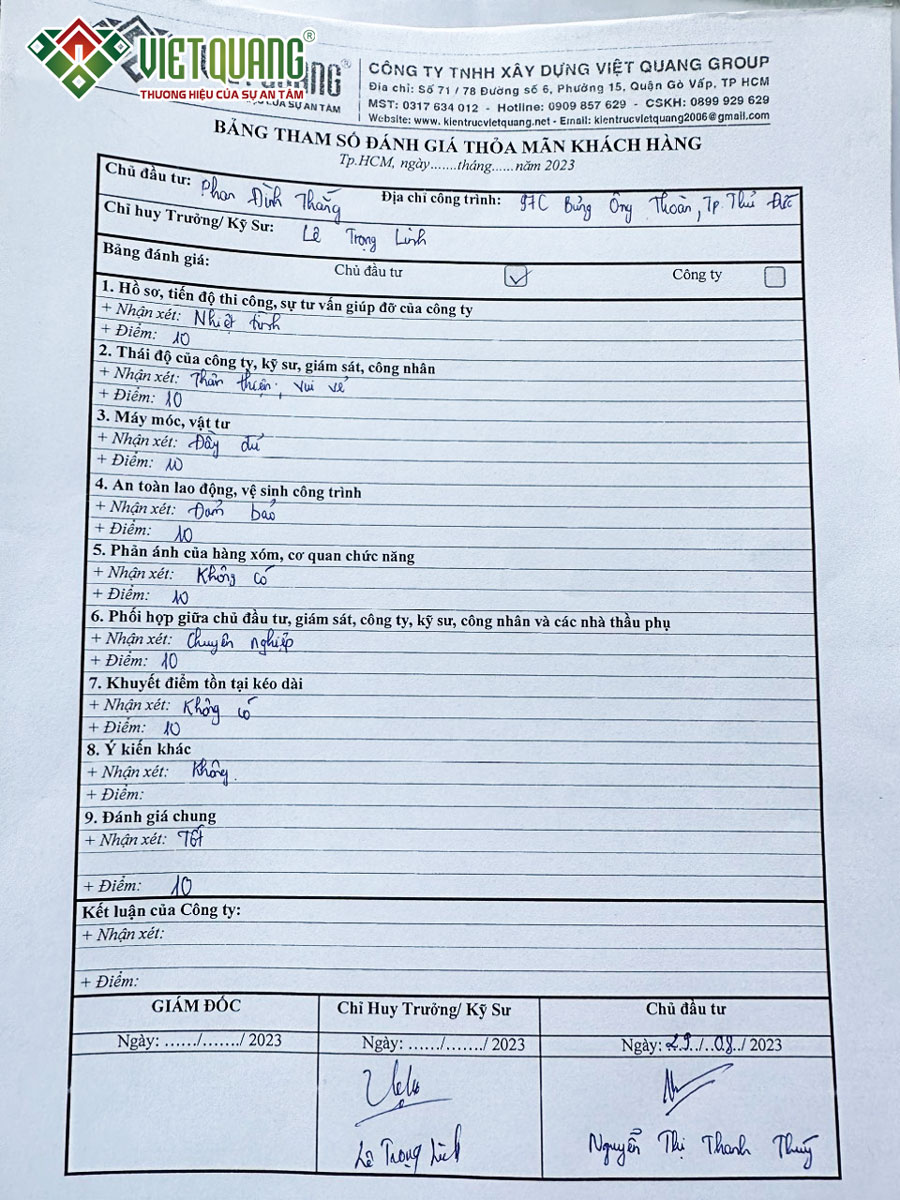 VIETQUANG®
THƯƠNG HIỆU CỦA SỰ AN TÂM
CÔNG TY TNHH XÂY DỰNG VIỆT QUANG GROUP
Địa chỉ: Số 71 / 78 Đường số 6, Phường 15, Quận Gò Vấp, TP HCM
MST: 0317 634 012 - Hotline: 0909 857 629 - CSKH: 0899 929 629
Website: www. kientrucvietquang.net - Email: kientrucvietquang2006@gmail.com
BẢNG THAM SỐ ĐÁNH GIÁ THỎA MÃN KHÁCH HÀNG
Tp.HCM, ngày.......tháng......năm 2023
Chủ đầu tư: Phan Đình Thắng Địa chỉ công trình: 97C Bưng Ông Thoàn, Tp. Thủ Đức
Chỉ huy Trưởng/ Kỹ Sư: Lê Trọng Linh
Bảng đánh giá: Chủ đầu tư ☑ Công ty ☐
1. Hồ sơ, tiến độ thi công, sự tư vấn giúp đỡ của công ty
+ Nhận xét: Nhiệt tình
+ Điểm: 10
2. Thái độ của công ty, kỹ sư, giám sát, công nhân
+ Nhận xét: Thân thiện, vui vẻ
+ Điểm: 10
3. Máy móc, vật tư
+ Nhận xét: Đầy đủ
+ Điểm: 10
4. An toàn lao động, vệ sinh công trình
+ Nhận xét: Đảm bảo
+ Điểm: 10
5. Phản ánh của hàng xóm, cơ quan chức năng
+ Nhận xét: Không có
+ Điểm: 10
6. Phối hợp giữa chủ đầu tư, giám sát, công ty, kỹ sư, công nhân và các nhà thầu phụ
+ Nhận xét: Chuyên nghiệp
+ Điểm: 10
7. Khuyết điểm tồn tại kéo dài
+ Nhận xét: Không có
+ Điểm: 10
8. Ý kiến khác
+ Nhận xét: Không.
+ Điểm:
9. Đánh giá chung
+ Nhận xét: Tốt
+ Điểm: 10
Kết luận của Công ty:
+ Nhận xét:
+ Điểm:
GIÁM ĐỐC Chỉ Huy Trưởng/ Kỹ Sư Chủ đầu tư
Ngày: ....../......./ 2023 Ngày: ....../......./ 2023 Ngày: 29../..08../ 2023
Lê Trọng Linh Nguyễn Thị Thanh Thúy